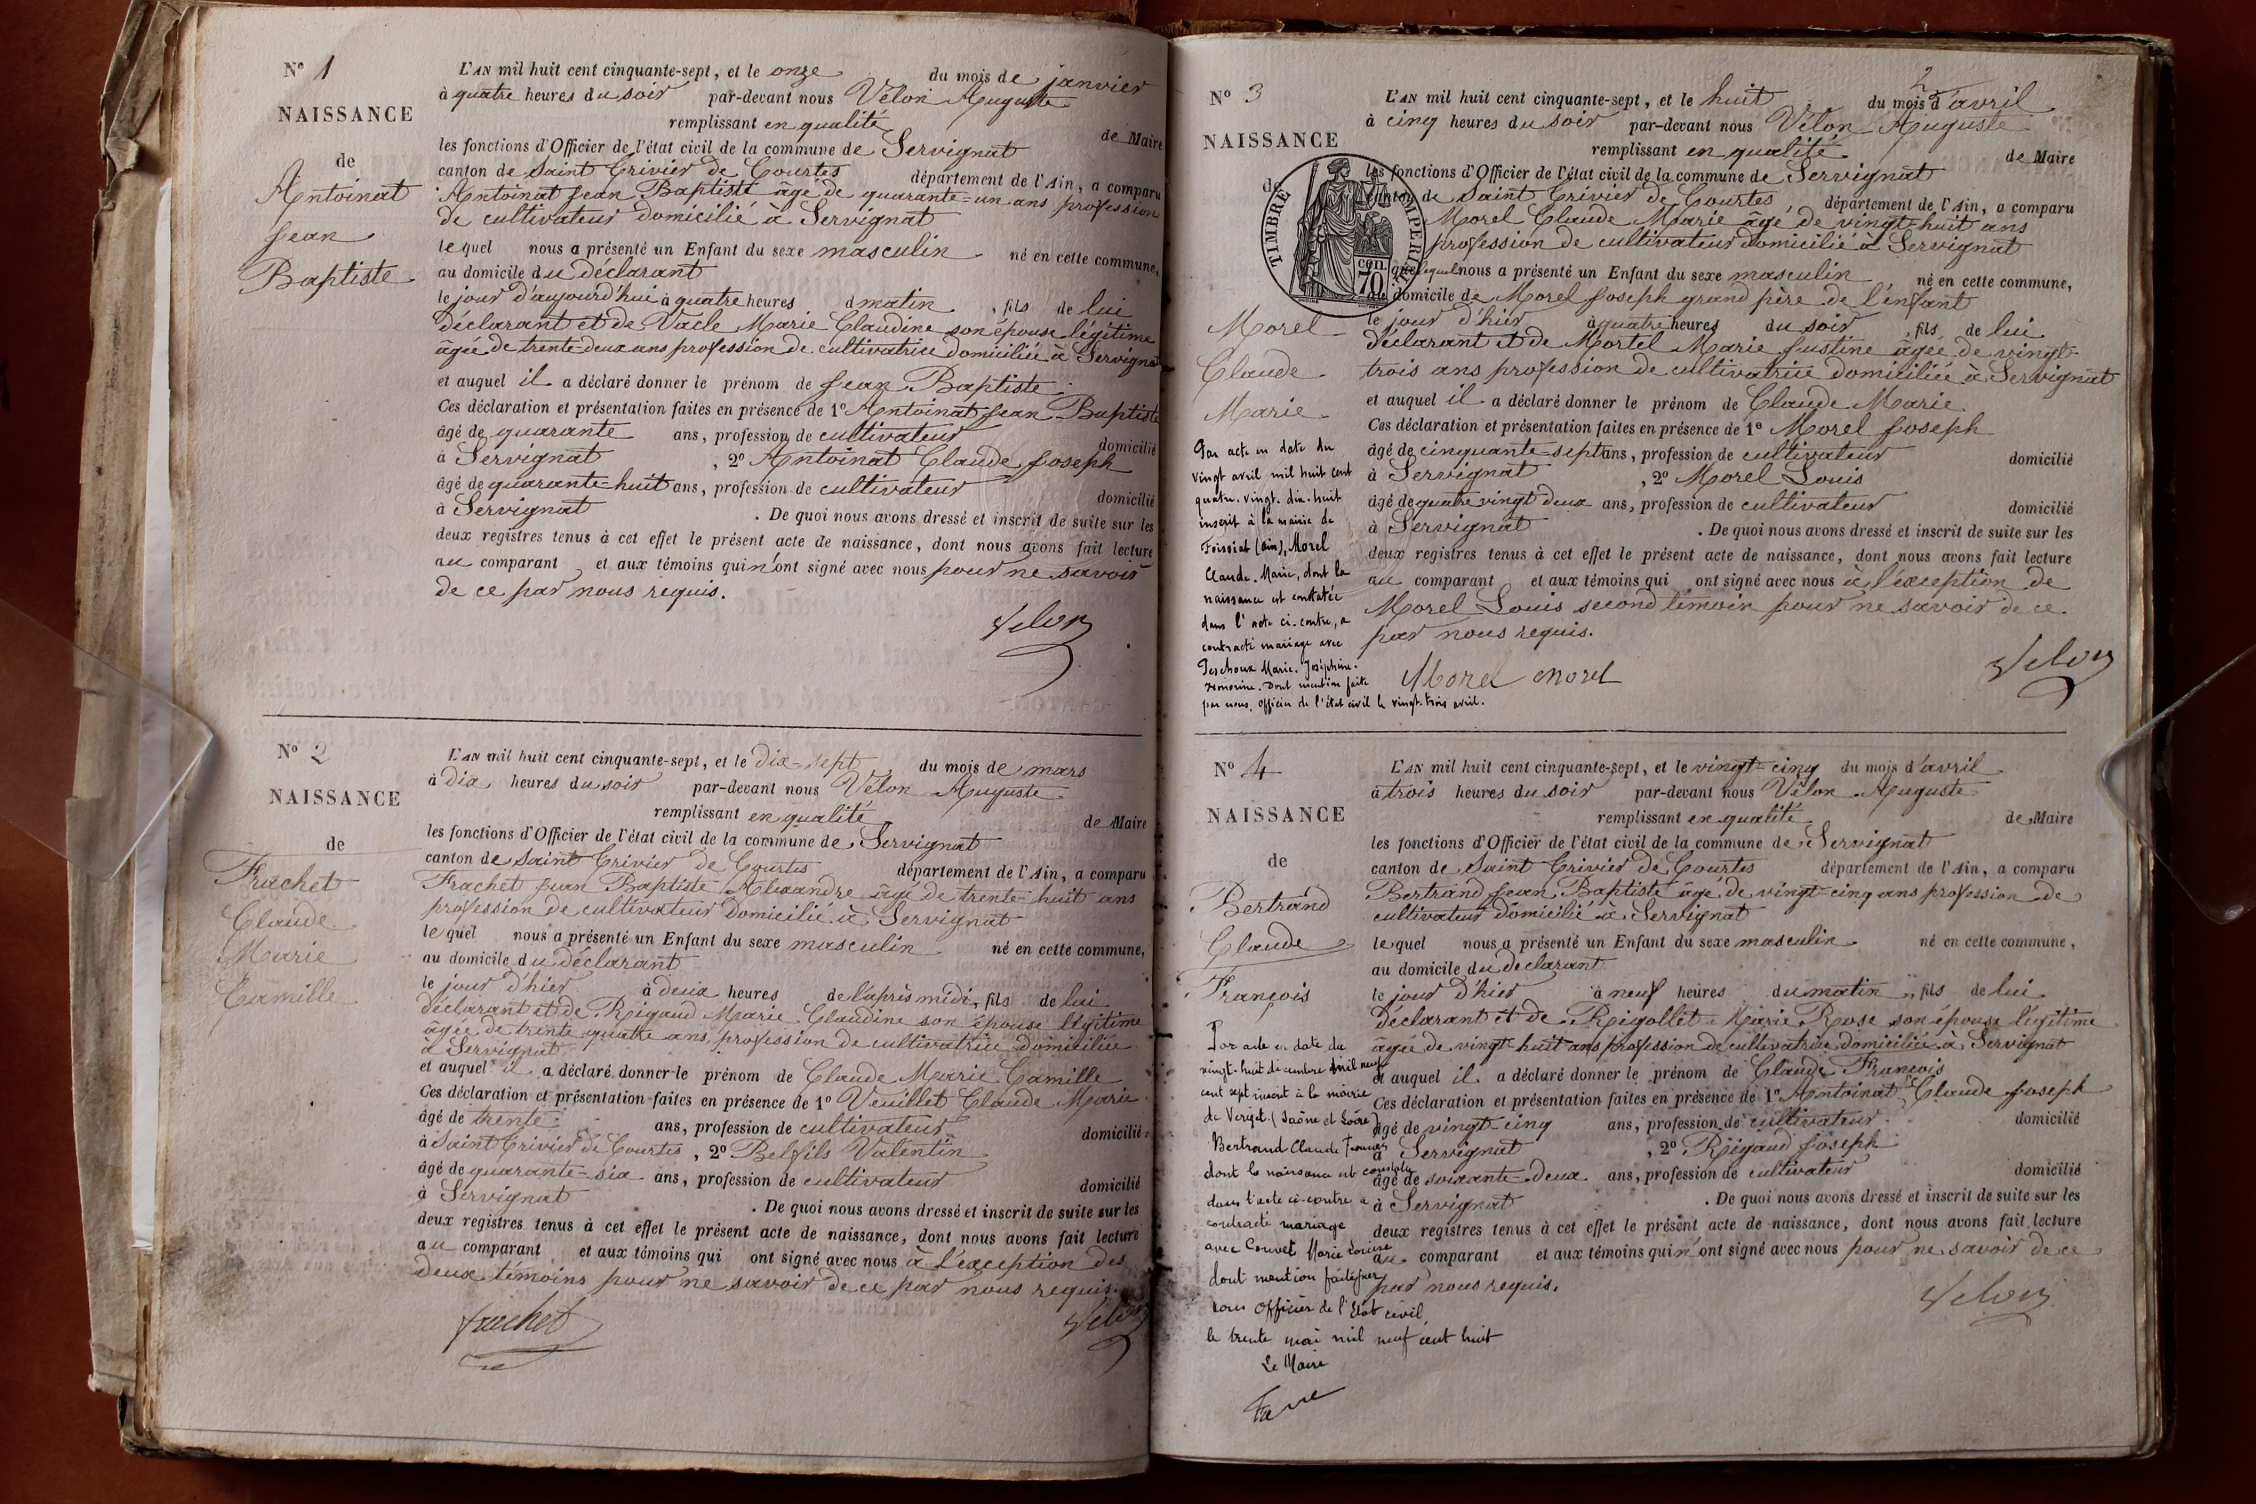 N° 1
NAISSANCE
de
Antoinat
Jean
Baptiste
L'AN mil huit cent cinquante-sept, et le onze du mois de janvier
à quatre heures du soir par-devant nous Velon Auguste
remplissant en qualité de Maire
les fonctions d'Officier de l'état civil de la commune de Servignat
canton de Saint Trivier de Courtes département de l'Ain, a comparu
Antoinat Jean Baptiste âgé de quarante-un ans profession
de cultivateur domicilié à Servignat
lequel nous a présenté un Enfant du sexe masculin né en cette commune,
au domicile du déclarant
le jour d'aujourd'hui à quatre heures d matin, fils de lui
déclarant et de Vacle Marie Claudine son épouse légitime
âgée de trente-deux ans profession de cultivatrice domiciliée à Servignat
et auquel il a déclaré donner le prénom de Jean Baptiste
Ces déclaration et présentation faites en présence de 1° Antoinat Jean Baptiste
âgé de quarante ans, profession de cultivateur domicilié
à Servignat, 2° Antoinat Claude Joseph
âgé de quarante-huit ans, profession de cultivateur domicilié
à Servignat. De quoi nous avons dressé et inscrit de suite sur les
deux registres tenus à cet effet le présent acte de naissance, dont nous avons fait lecture
au comparant et aux témoins qui n'ont signé avec nous pour ne savoir
de ce par nous requis.
Velon
N° 2
NAISSANCE
de
Frachet
Claude
Marie
Camille
L'AN mil huit cent cinquante-sept, et le dix-sept du mois de mars
à dix heures du soir par-devant nous Velon Auguste
remplissant en qualité de Maire
les fonctions d'Officier de l'état civil de la commune de Servignat
canton de Saint Trivier de Courtes département de l'Ain, a comparu
Frachet Jean Baptiste Alexandre âgé de trente-huit ans
profession de cultivateur domicilié à Servignat
lequel nous a présenté un Enfant du sexe masculin né en cette commune,
au domicile du déclarant
le jour d'hier à deux heures de l'après midi, fils de lui
déclarant et de Rigaud Marie Claudine son épouse légitime
âgée de trente quatre ans profession de cultivatrice domiciliée
à Servignat
et auquel il a déclaré donner le prénom de Claude Marie Camille
Ces déclaration et présentation faites en présence de 1° Veuillet Claude Marie
âgé de trente ans, profession de cultivateur domicilié
à Saint Trivier de Courtes, 2° Belfils Valentin
âgé de quarante-six ans, profession de cultivateur domicilié
à Servignat. De quoi nous avons dressé et inscrit de suite sur les
deux registres tenus à cet effet le présent acte de naissance, dont nous avons fait lecture
au comparant et aux témoins qui ont signé avec nous à l'exception des
deux témoins pour ne savoir de ce par nous requis.
frachet Velon
2
N° 3
NAISSANCE
de
TIMBRE IMPERIAL
70 cen.
Morel
Claude
Marie
Par acte en date du
vingt avril mil huit cent
quatre-vingt-dix-huit
inscrit à la mairie de
Foissiat (Ain), Morel
Claude-Marie, dont la
naissance est constatée
dans l'acte ci-contre, a
contracté mariage avec
Peschoux Marie-Joséphine-
Honorine. Dont mention faite
par nous, officier de l'état civil le vingt-trois avril.
L'AN mil huit cent cinquante-sept, et le huit du mois d'avril
à cinq heures du soir par-devant nous Velon Auguste
remplissant en qualité de Maire
les fonctions d'Officier de l'état civil de la commune de Servignat
canton de Saint Trivier de Courtes, département de l'Ain, a comparu
Morel Claude Marie âgé de vingt-huit ans
profession de cultivateur domicilié à Servignat
lequel nous a présenté un Enfant du sexe masculin né en cette commune,
au domicile de Morel Joseph grand père de l'enfant
le jour d'hier à quatre heures du soir, fils de lui
déclarant et de Mortel Marie Justine âgée de vingt-
trois ans profession de cultivatrice domiciliée à Servignat
et auquel il a déclaré donner le prénom de Claude Marie
Ces déclaration et présentation faites en présence de 1° Morel Joseph
âgé de cinquante-sept ans, profession de cultivateur domicilié
à Servignat, 2° Morel Louis
âgé de quatre vingt deux ans, profession de cultivateur domicilié
à Servignat. De quoi nous avons dressé et inscrit de suite sur les
deux registres tenus à cet effet le présent acte de naissance, dont nous avons fait lecture
au comparant et aux témoins qui ont signé avec nous à l'exception de
Morel Louis second témoin pour ne savoir de ce
par nous requis.
Morel morel Velon
N° 4
NAISSANCE
de
Bertrand
Claude
François
Par acte en date du
vingt-huit décembre mil neuf
cent sept inscrit à la mairie
de Verizet (Saône et Loire)
Bertrand Claude François
dont la naissance est constatée
dans l'acte ci-contre a
contracté mariage
avec Couvet Marie Louise
dont mention faite par
nous Officier de l'Etat civil
le trente mai mil neuf cent huit
Le Maire
L'AN mil huit cent cinquante-sept, et le vingt-cinq du mois d'avril
à trois heures du soir par-devant nous Velon Auguste
remplissant en qualité de Maire
les fonctions d'Officier de l'état civil de la commune de Servignat
canton de Saint Trivier de Courtes département de l'Ain, a comparu
Bertrand Jean Baptiste âgé de vingt-cinq ans profession de
cultivateur domicilié à Servignat
lequel nous a présenté un Enfant du sexe masculin né en cette commune,
au domicile du déclarant
le jour d'hier à neuf heures du matin, fils de lui
déclarant et de Rigollet Marie Rose son épouse légitime
âgée de vingt-huit ans profession de cultivatrice domiciliée à Servignat
et auquel il a déclaré donner le prénom de Claude François
Ces déclaration et présentation faites en présence de 1° Antoinat Claude Joseph
âgé de vingt-cinq ans, profession de cultivateur domicilié
à Servignat, 2° Rigaud Joseph
âgé de soixante-deux ans, profession de cultivateur domicilié
à Servignat. De quoi nous avons dressé et inscrit de suite sur les
deux registres tenus à cet effet le présent acte de naissance, dont nous avons fait lecture
au comparant et aux témoins qui n'ont signé avec nous pour ne savoir de ce
par nous requis.
Velon